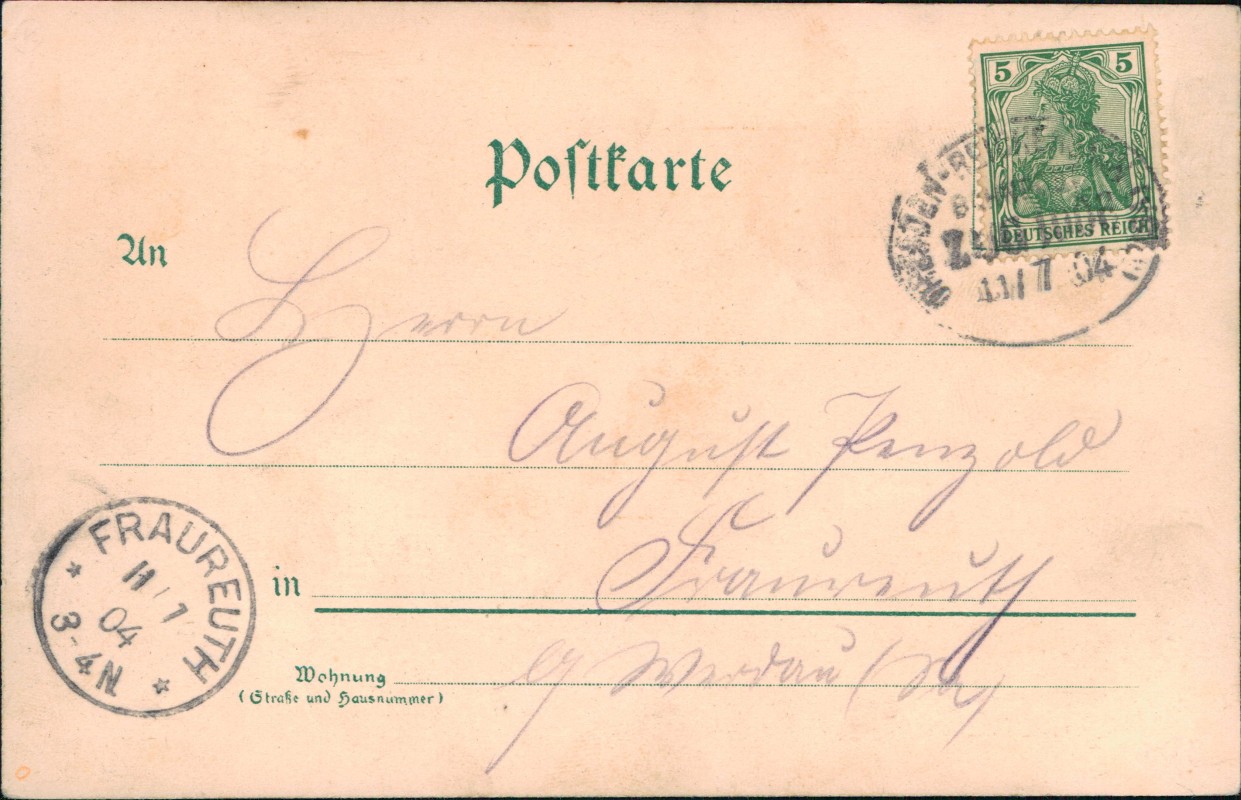 5 5
DEUTSCHES REICH
DRESDEN-
11/7 04
Postkarte
An
Herrn
August Penzold
in Fraureuth
Wohnung
(Straße und Hausnummer)
b/ Werdau (Sa)
FRAUREUTH
11/7
04
3-4N